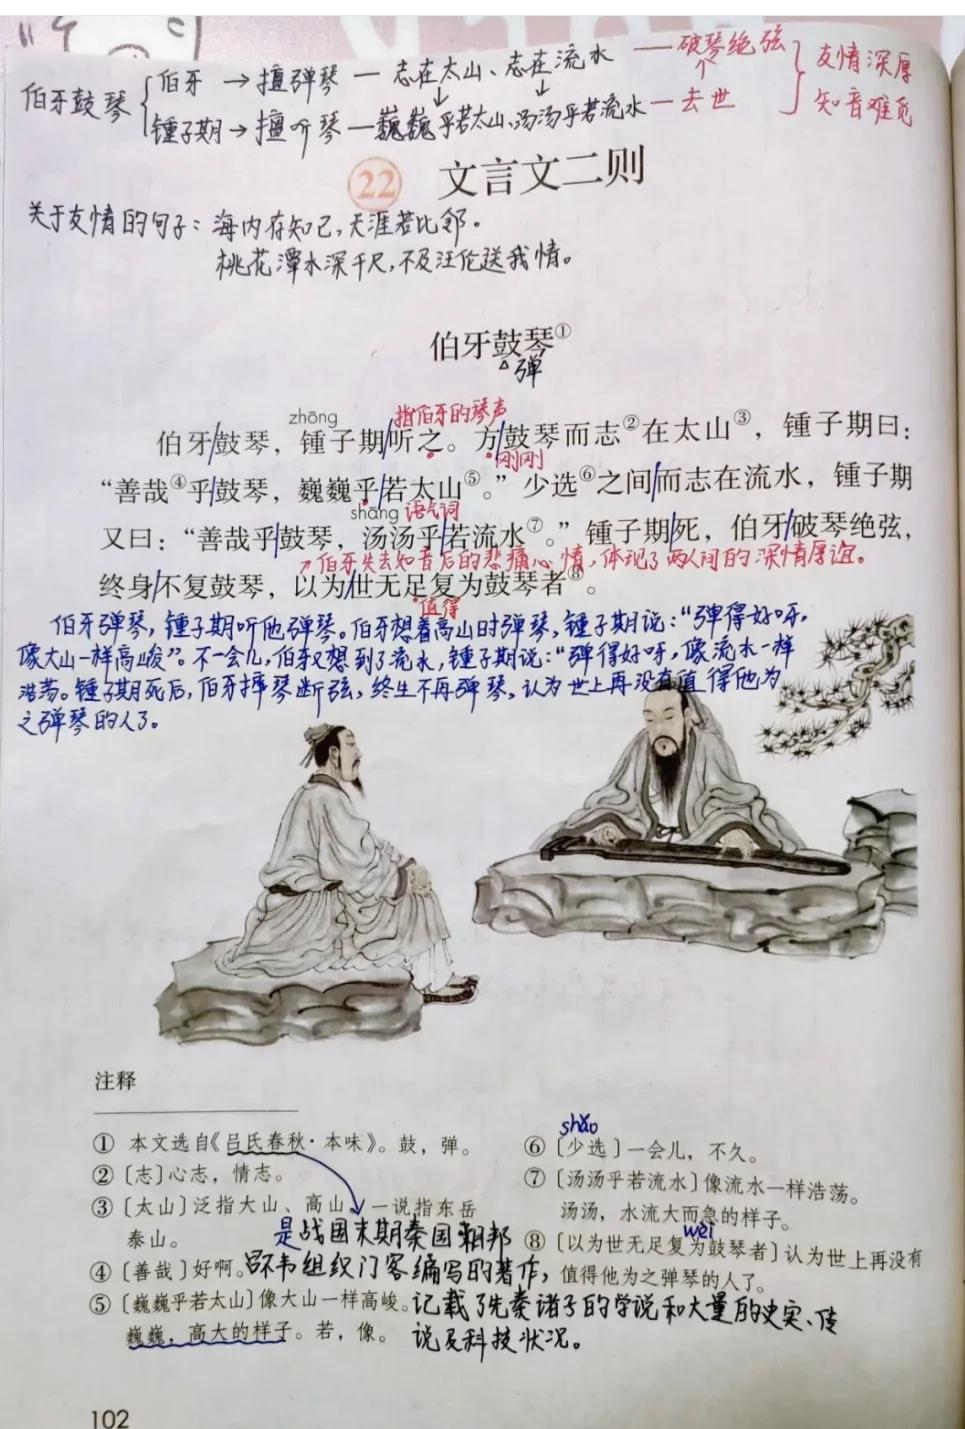 伯牙鼓琴
伯牙→擅弹琴—志在太山、志在流水—破琴绝弦
锺子期→擅听琴—巍巍乎若太山、汤汤乎若流水—去世
友情深厚
知音难觅
22 文言文二则
关于友情的句子：海内存知己，天涯若比邻。
桃花潭水深千尺，不及汪伦送我情。
伯牙鼓琴①
弹
zhōng 指伯牙的琴声
伯牙/鼓琴，锺子期/听之。方/鼓琴而志②在太山③，锺子期曰：
刚刚
“善哉④乎/鼓琴，巍巍乎/若太山⑤。”少选⑥之间/而志在流水，锺子期
shāng 语气词
又曰：“善哉乎/鼓琴，汤汤乎/若流水⑦。”锺子期/死，伯牙/破琴绝弦，
伯牙失去知音后的悲痛心情，体现了两人间的深情厚谊。
终身/不复鼓琴，以为/世无足复为鼓琴者⑧。
值得
伯牙弹琴，锺子期听他弹琴。伯牙想着高山时弹琴，锺子期说：“弹得好呀，
像大山一样高峻”。不一会儿，伯牙又想到了流水，锺子期说：“弹得好呀，像流水一样
浩荡。锺子期死后，伯牙摔琴断弦，终生不再弹琴，认为世上再没有值得他为
之弹琴的人了。
注释
① 本文选自《吕氏春秋·本味》。鼓，弹。
②〔志〕心志，情志。
③〔太山〕泛指大山、高山。一说指东岳
泰山。
④〔善哉〕好啊。
⑤〔巍巍乎若太山〕像大山一样高峻。
巍巍，高大的样子。若，像。
是战国末期秦国相邦
吕不韦组织门客编写的著作，
记载了先秦诸子的学说和大量的史实、传
说及科技状况。
shǎo
⑥〔少选〕一会儿，不久。
⑦〔汤汤乎若流水〕像流水一样浩荡。
汤汤，水流大而急的样子。
wèi
⑧〔以为世无足复为鼓琴者〕认为世上再没有
值得他为之弹琴的人了。
102